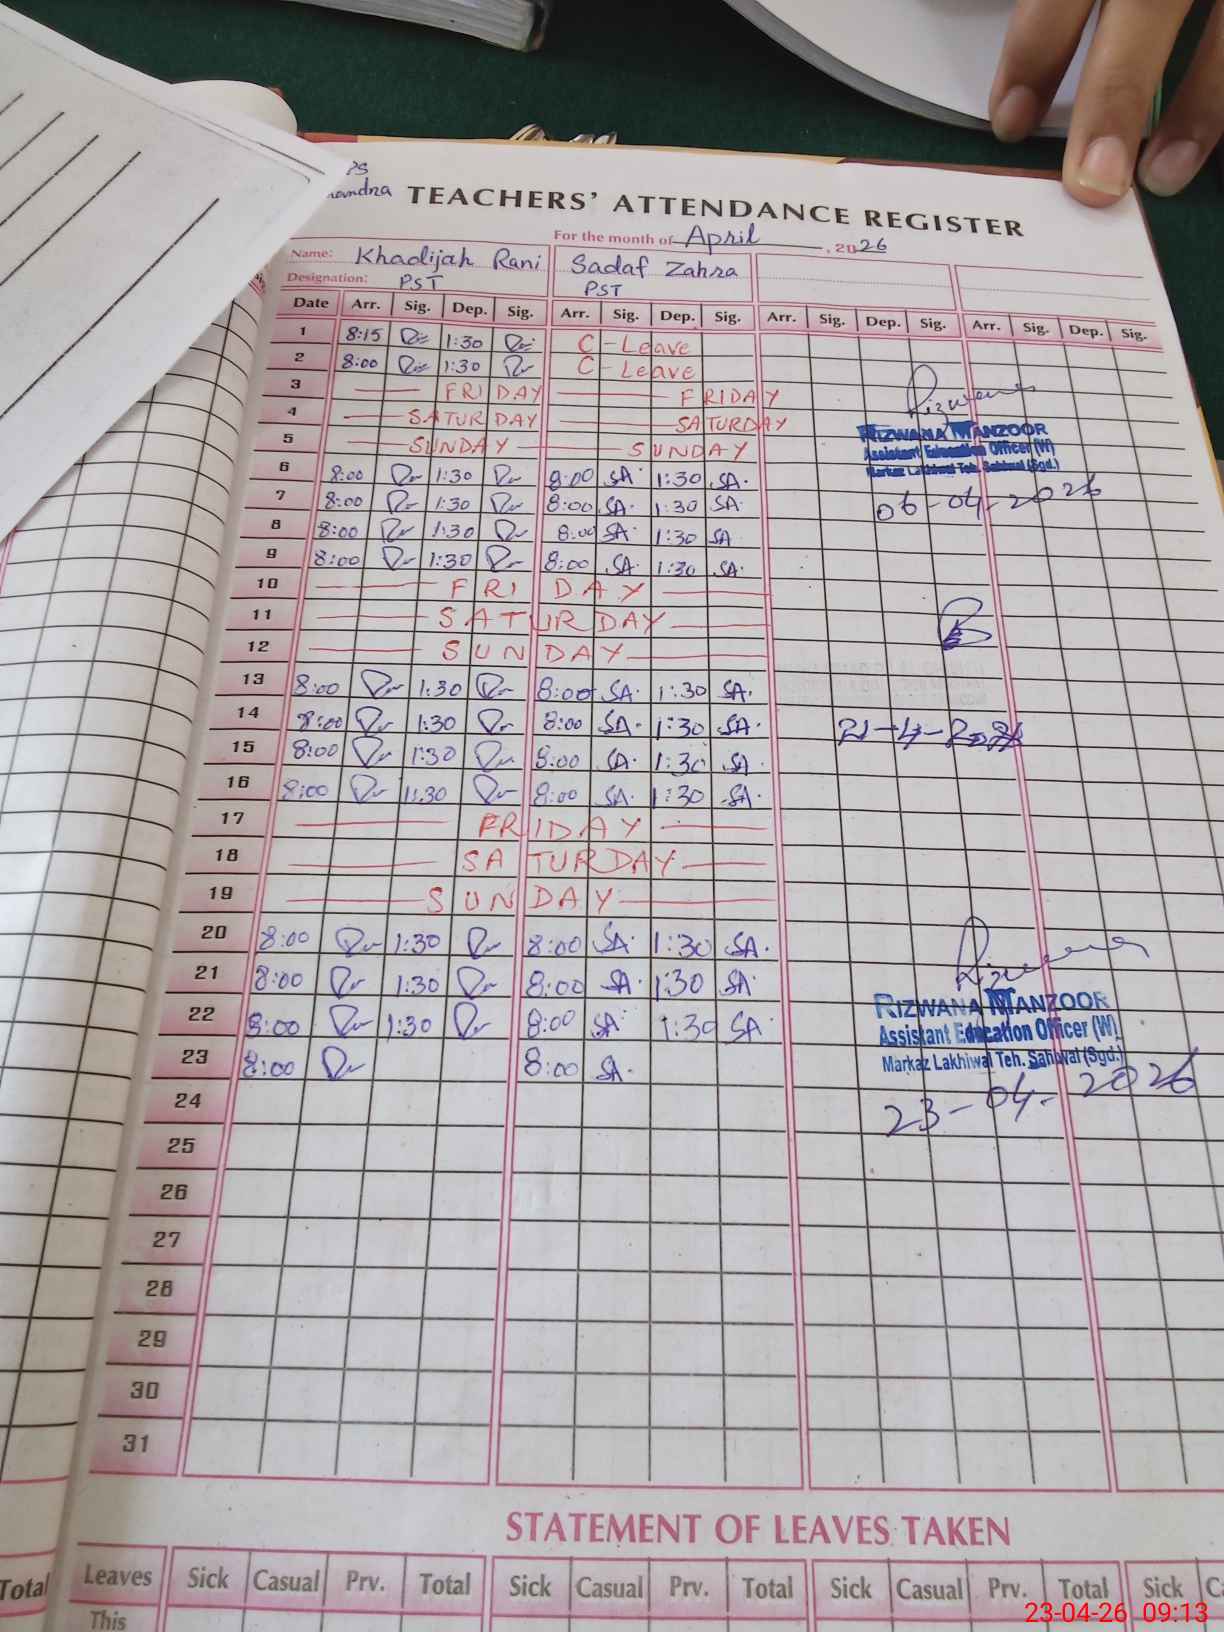 PS
TEACHERS' ATTENDANCE REGISTER
For the month of April, 2026
Name: Khadijah Rani Sadaf Zahra
Designation: PST PST
Date Arr. Sig. Dep. Sig. Arr. Sig. Dep. Sig. Arr. Sig. Dep. Sig. Arr. Sig. Dep. Sig.
1 8:15 1:30 C - Leave
2 8:00 1:30 C - Leave
3 FRIDAY FRIDAY
4 SATURDAY SATURDAY
5 SUNDAY SUNDAY
6 8:00 1:30 8:00 SA. 1:30 SA.
7 8:00 1:30 8:00 SA. 1:30 SA.
8 8:00 1:30 8:00 SA. 1:30 SA
9 8:00 1:30 8:00 SA. 1:30 SA.
10 FRIDAY
11 SATURDAY
12 SUNDAY
13 8:00 1:30 8:00 SA. 1:30 SA.
14 8:00 1:30 8:00 SA. 1:30 SA.
15 8:00 1:30 8:00 SA. 1:30 SA.
16 8:00 1:30 8:00 SA. 1:30 SA.
17 FRIDAY
18 SATURDAY
19 SUNDAY
20 8:00 1:30 8:00 SA. 1:30 SA.
21 8:00 1:30 8:00 SA. 1:30 SA.
22 8:00 1:30 8:00 SA. 1:30 SA.
23 8:00 8:00 SA.
24
25
26
27
28
29
30
31
Rizwana
RIZWANA MANZOOR
Assistant Education Officer (W)
Markaz Lakhiwal Teh. Sahiwal (Sgd.)
06-04-2026
21-4-2026
Rizwana
RIZWANA MANZOOR
Assistant Education Officer (W)
Markaz Lakhiwal Teh. Sahiwal (Sgd.)
23-04-2026
STATEMENT OF LEAVES TAKEN
Total Leaves Sick Casual Prv. Total Sick Casual Prv. Total Sick Casual Prv. Total Sick
This
23-04-26 09:13